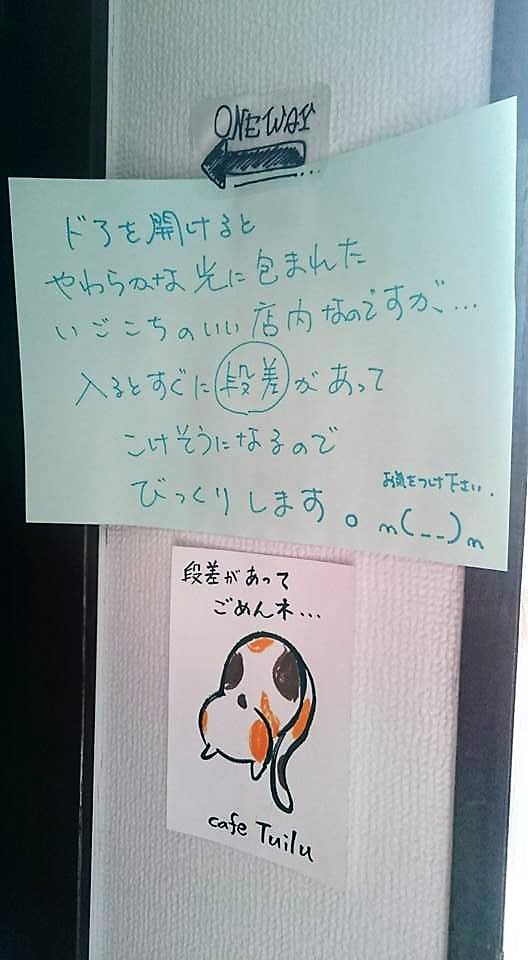 ONE WAY
ドアを開けると
やわらかな光に包まれた
いごこちのいい店内なのですが…
入るとすぐに段差があって
こけそうになるので
びっくりします。
お気をつけ下さい.
m(__)m
段差があって
ごめんネ…
cafe Tuilu